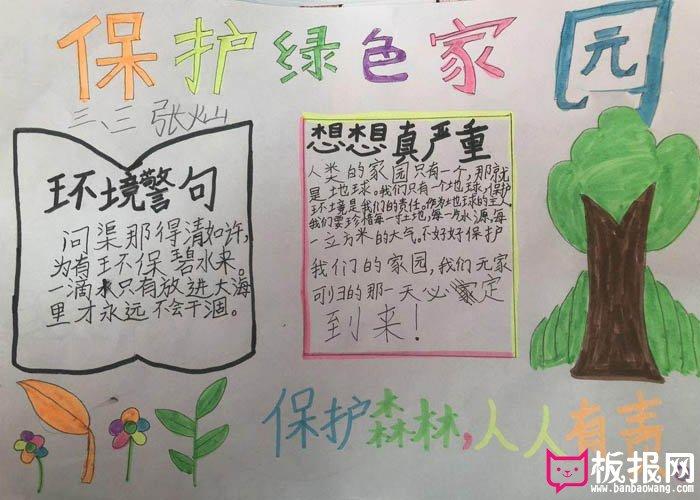 保护绿色家园
三、三 张灿
环境警句
问渠那得清如许,
为有环保碧水来。
一滴水只有放进大海
里才永远不会干涸。
想想真严重
人类的家园只有一个,那就
是地球。我们只有一个地球,保护
环境是我们的责任。作为地球的主人
我们要珍惜每一寸土地,每一片水源,每
一立方米的大气。不好好保护
我们的家园,我们无家
可归的那一天必定
到来!
保护森林,人人有责
板报网
www.banbaowang.com